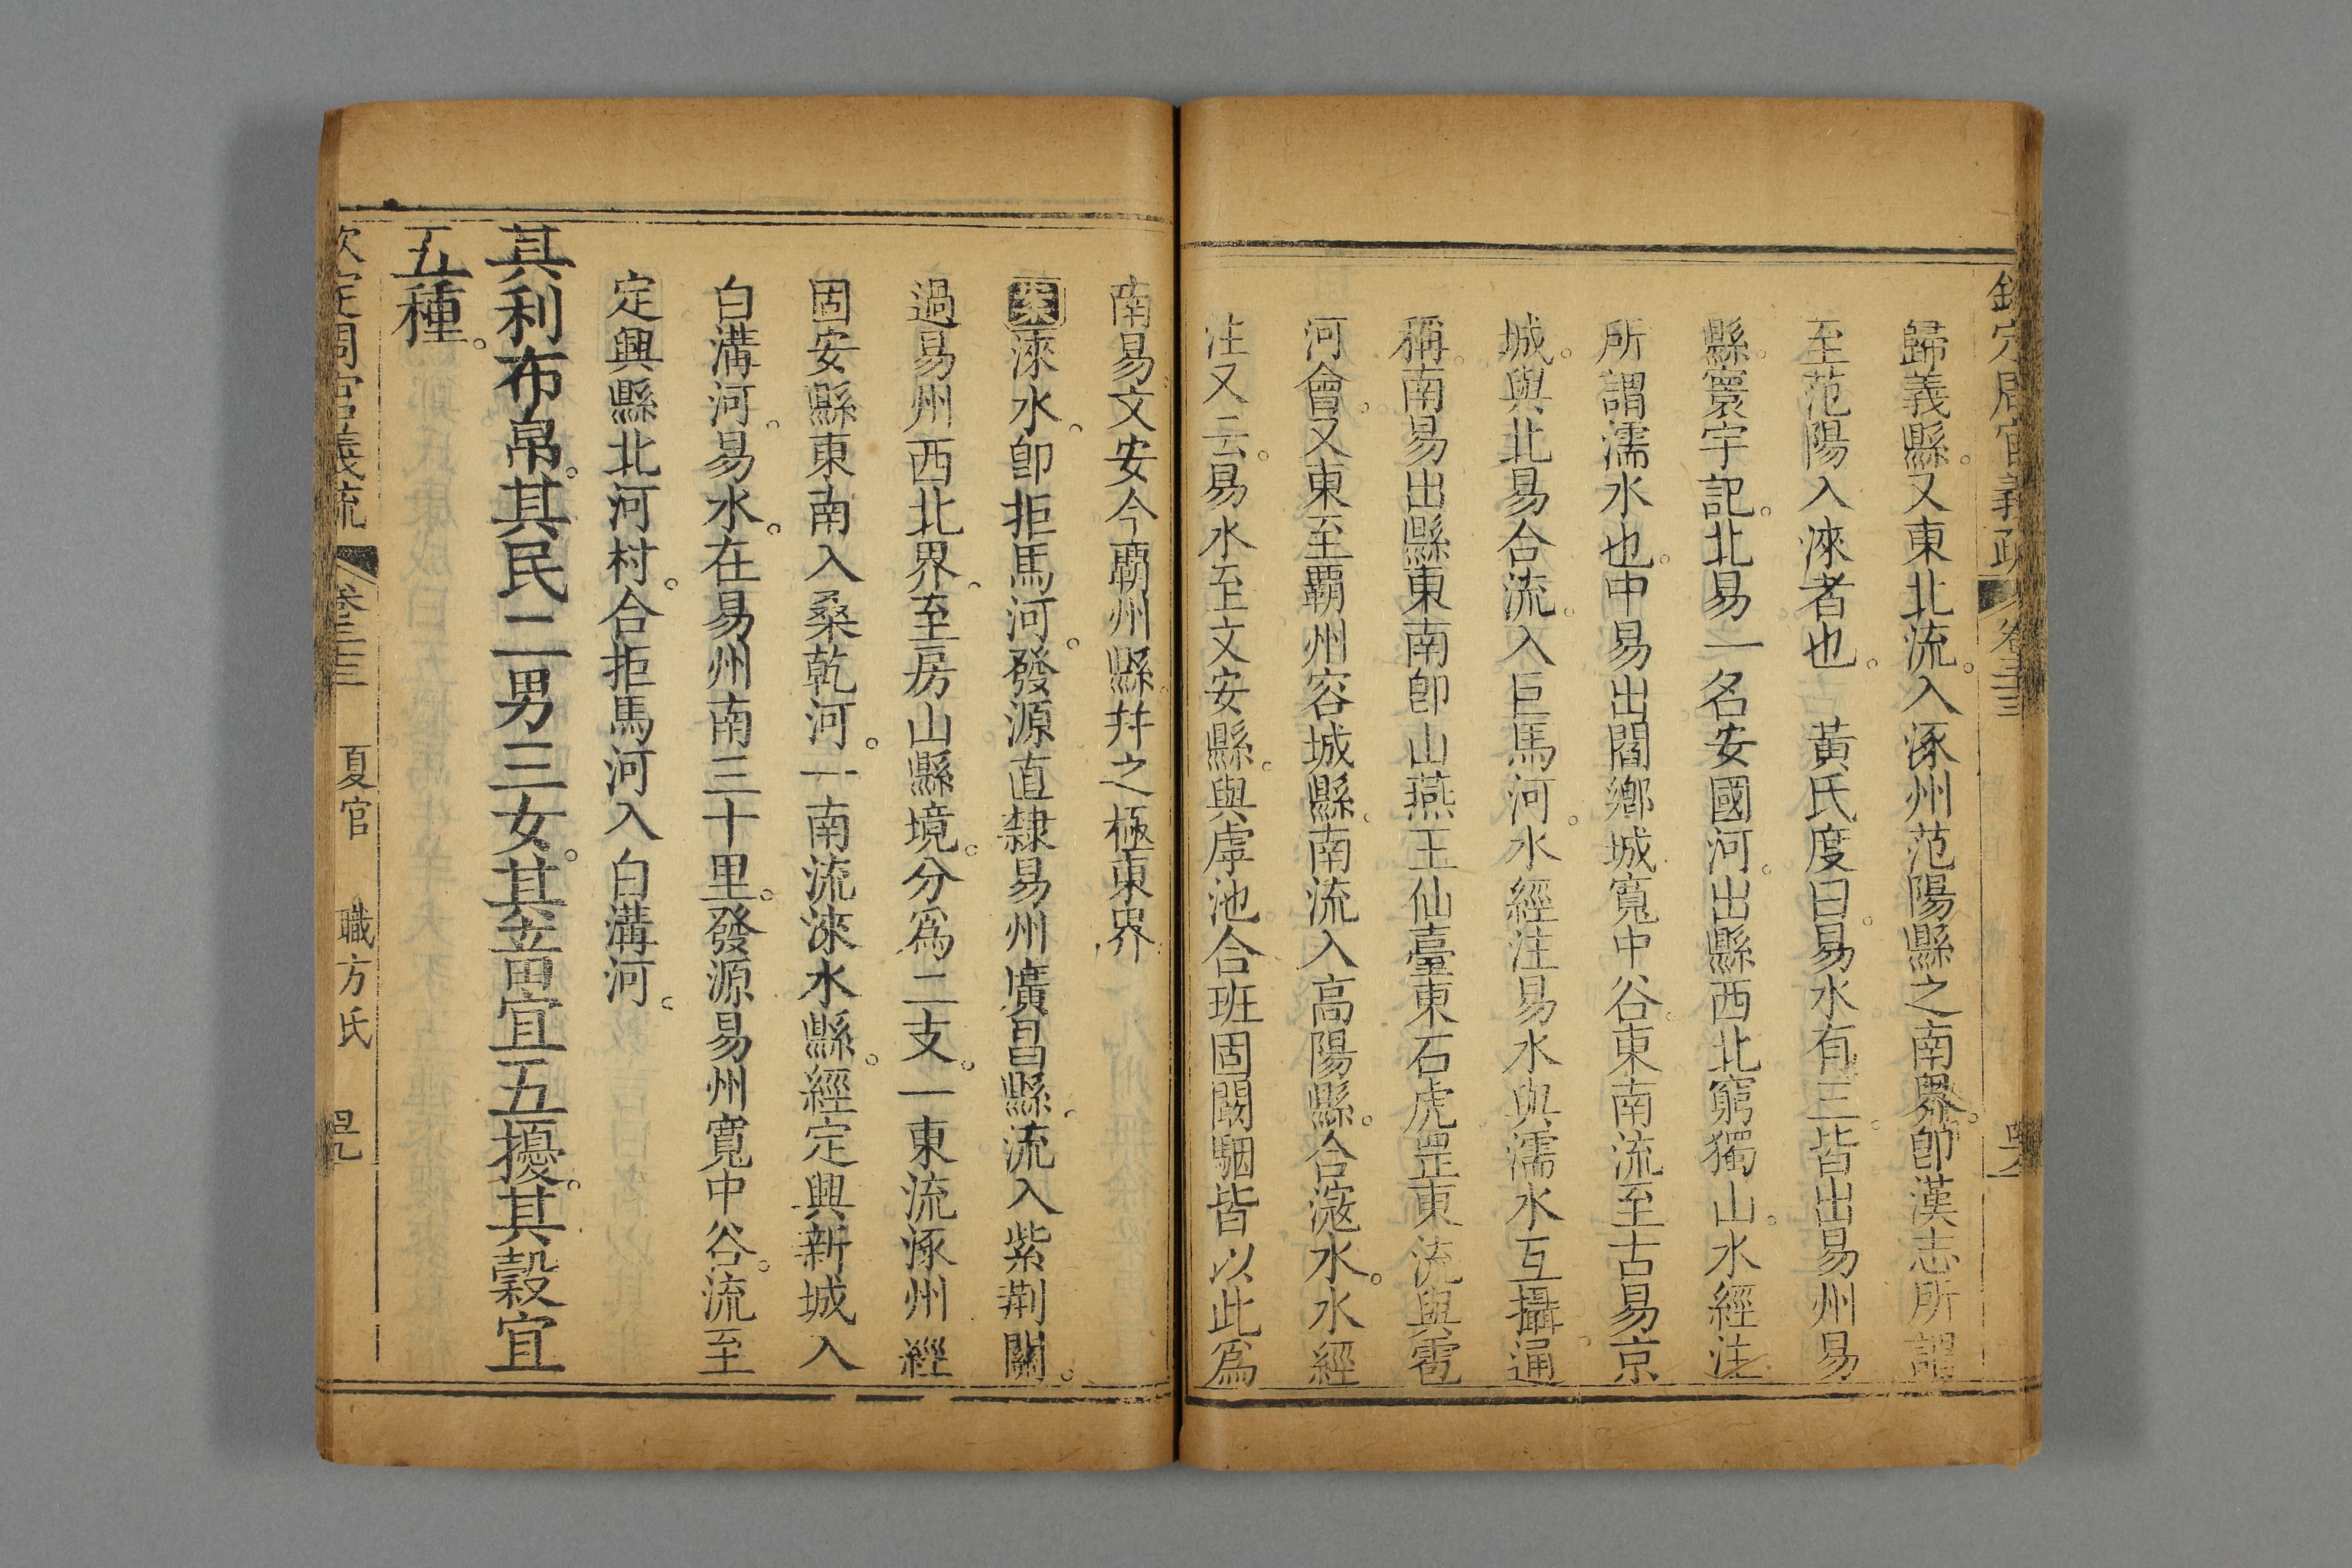 欽定周官義疏 卷三十三
歸義縣。又東北流。入涿州范陽縣之南界。卽漢志所謂
至范陽入淶者也。 黃氏度曰。易水有三。皆出易州易
縣。寰宇記。北易一名安國河。出縣西北窮獨山。水經注
所謂濡水也。中易出閻鄉城寬中谷。東南流至古易京
城。與北易合流。入巨馬河。水經注易水與濡水互攝通
稱。南易出縣東南卽山燕王仙臺東石虎罡東流與雹
河會。又東至霸州容城縣。南流入高陽縣。合滱水。水經
注又云。易水至文安縣。與虖池合班固闞駰皆以此爲
南易文安今霸州縣幷之極東界
案淶水。卽拒馬河。發源直隸易州廣昌縣。流入紫荆關。
過易州西北界。至房山縣境。分爲二支。一東流涿州經
固安縣東南入桑乾河。一南流淶水縣。經定興新城入
白溝河。易水。在易州南三十里。發源易州寬中谷。流至
定興縣北河村。合拒馬河入白溝河。
其利布帛。其民二男三女。其畜宜五擾。其穀宜
五種。
欽定周官義疏 卷三十三 夏官 職方氏